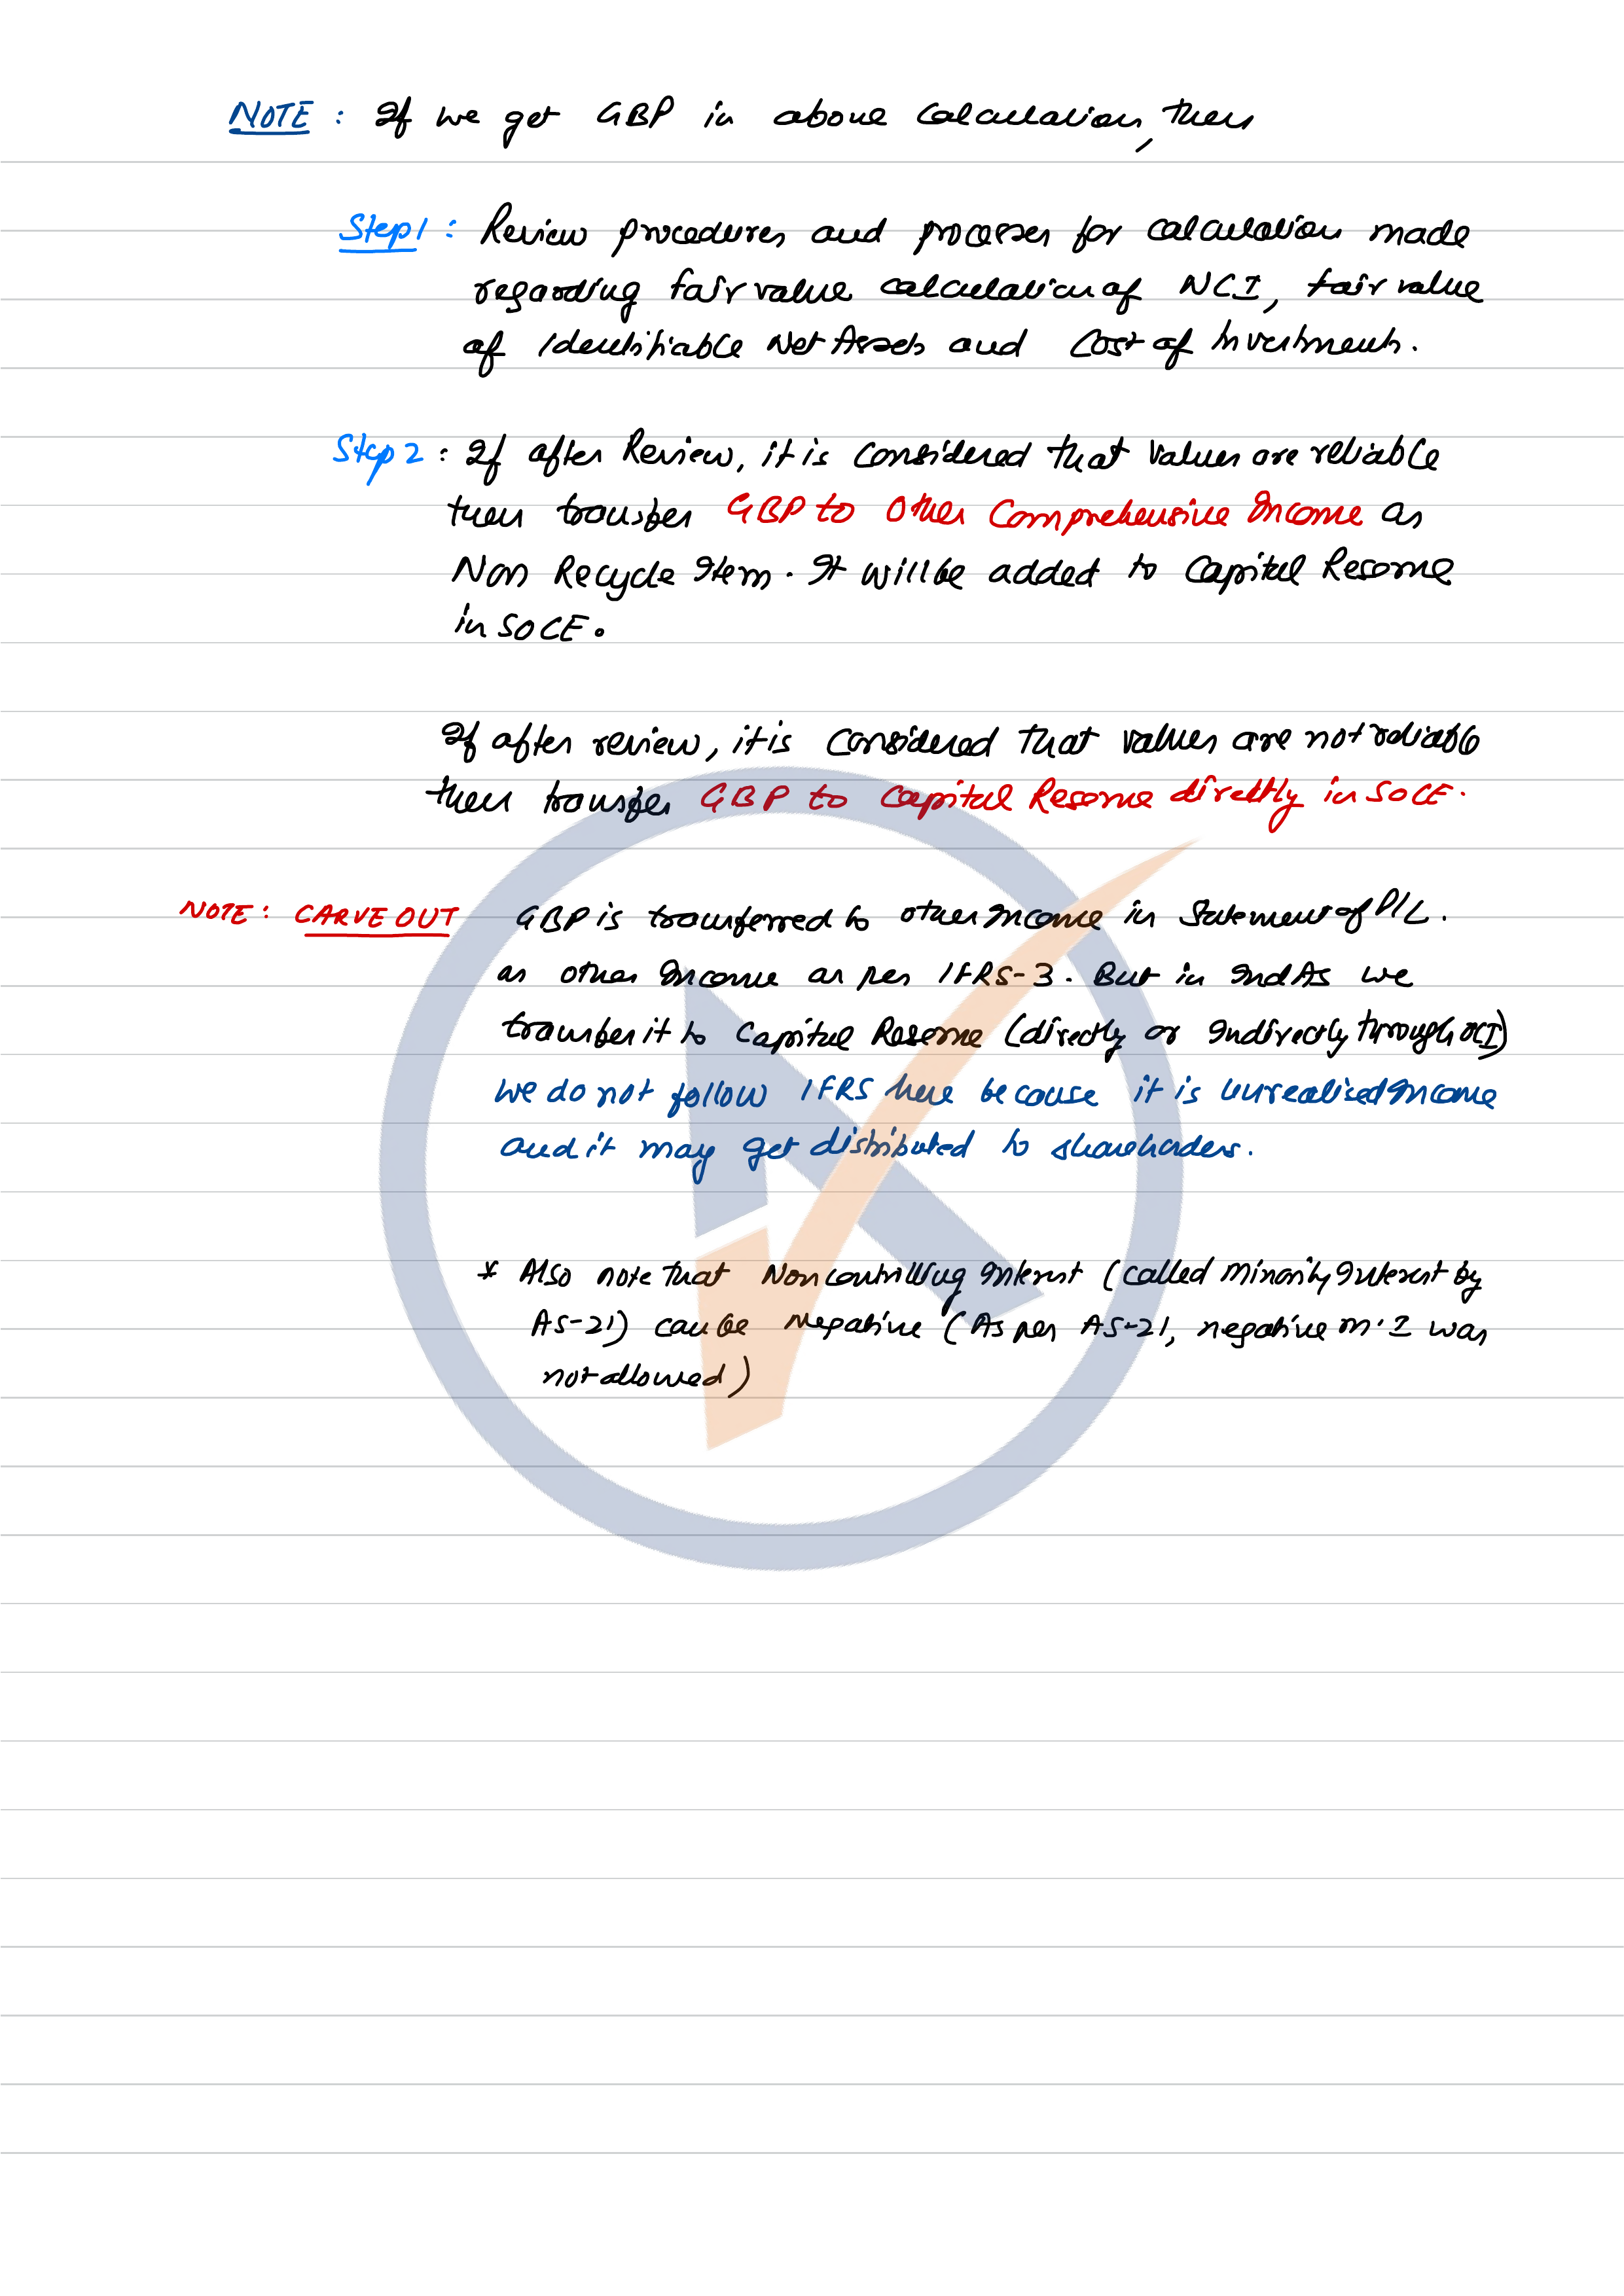 NOTE : If we get GBP in above calculation, then
Step 1 : Review procedures and processes for calculation made
regarding fair value calculation of NCI, fair value
of Identifiable Net Assets and Cost of Investments.
Step 2 : If after Review, it is considered that values are reliable
then transfer GBP to Other Comprehensive Income as
Non Recycle Item. It will be added to Capital Reserve
in SOCE.
If after review, it is considered that values are not reliable
then transfer GBP to Capital Reserve directly in SOCE.
NOTE : CARVE OUT GBP is transferred to other Income in Statement of P/L.
as other Income as per IFRS-3. But in IndAs we
transfer it to Capital Reserve (directly or Indirectly through OCI)
We do not follow IFRS here because it is unrealised Income
and it may get distributed to shareholders.
* Also note that Non controlling Interest (called Minority Interest by
AS-21) can be Negative (As per AS-21, negative M.I was
not allowed)